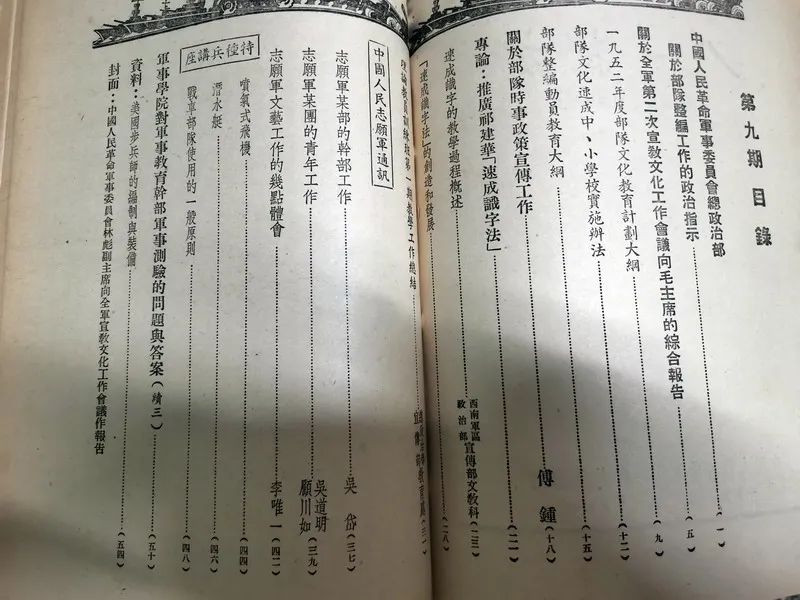 第九期目錄
中國人民革命軍事委員會總政治部
關於部隊整編工作的政治指示………(一)
關於全軍第二次宣教文化工作會議向毛主席的綜合報告………(五)
一九五二年度部隊文化教育計劃大綱………(九)
部隊文化速成中、小學校實施辦法………(十二)
部隊整編動員教育大綱………(十五)
關於部隊時事政策宣傳工作………傅鍾(十八)
專論：推廣祁建華「速成識字法」………(二一)
速成識字的教學過程概述………西南軍區政治部宣傳部文教科(二三)
「速成識字法」的創造和發展………(二八)
理論教員訓練班第一期教學工作總結………
中國人民志願軍通訊
志願軍某部的幹部工作………吳岱(三七)
志願軍某團的青年工作………吳道明 顧川如(三九)
志願軍文藝工作的幾點體會………李唯一(四二)
特種兵講座
噴氣式飛機………(四四)
潛水艇………(四六)
戰車部隊使用的一般原則………(四八)
軍事學院對軍事教育幹部軍事測驗的問題與答案(續三)………(五十)
資料：美國步兵師的編制與裝備………(五四)
封面：中國人民革命軍事委員會林彪副主席向全軍宣教文化工作會議作報告